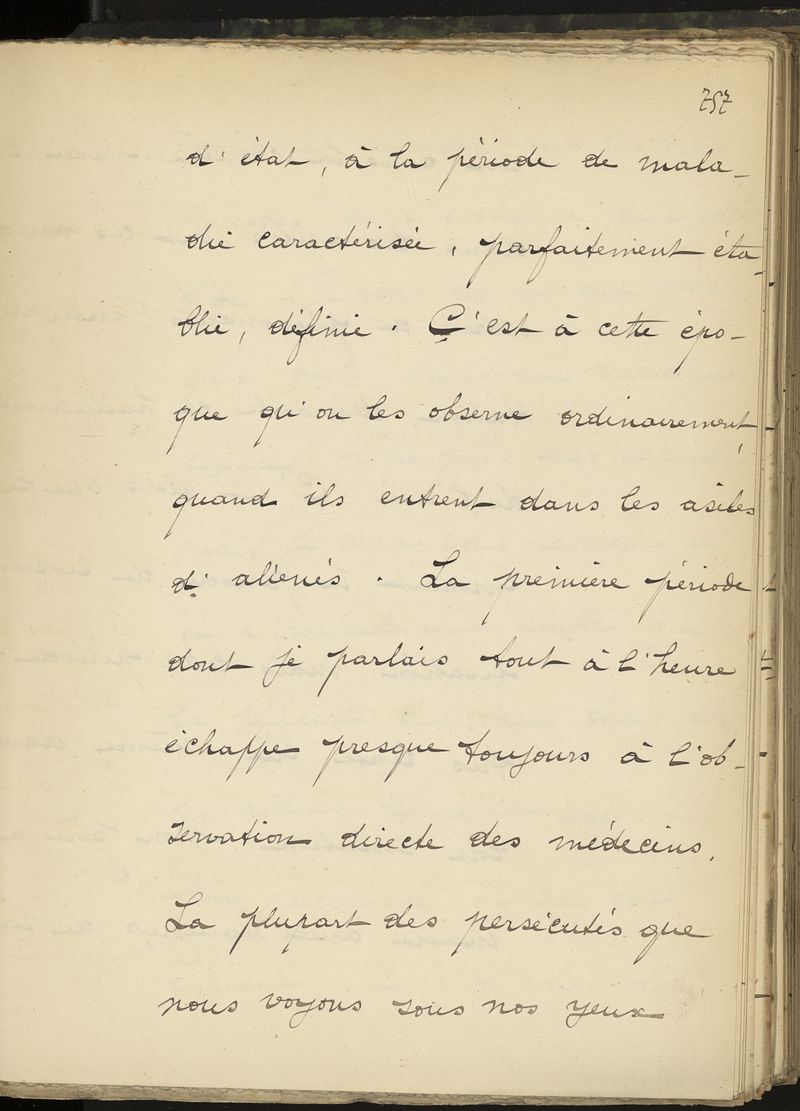 757
d'état, à la période de mala-
die caractérisée, parfaitement éta-
blie, définie. C'est à cette épo-
que qu'on les observe ordinairement,
quand ils entrent dans les asiles
d'aliénés. La première période
dont je parlais tout à l'heure
échappe presque toujours à l'ob-
servation directe des médecins.
La plupart des persécutés que
nous voyons sous nos yeux